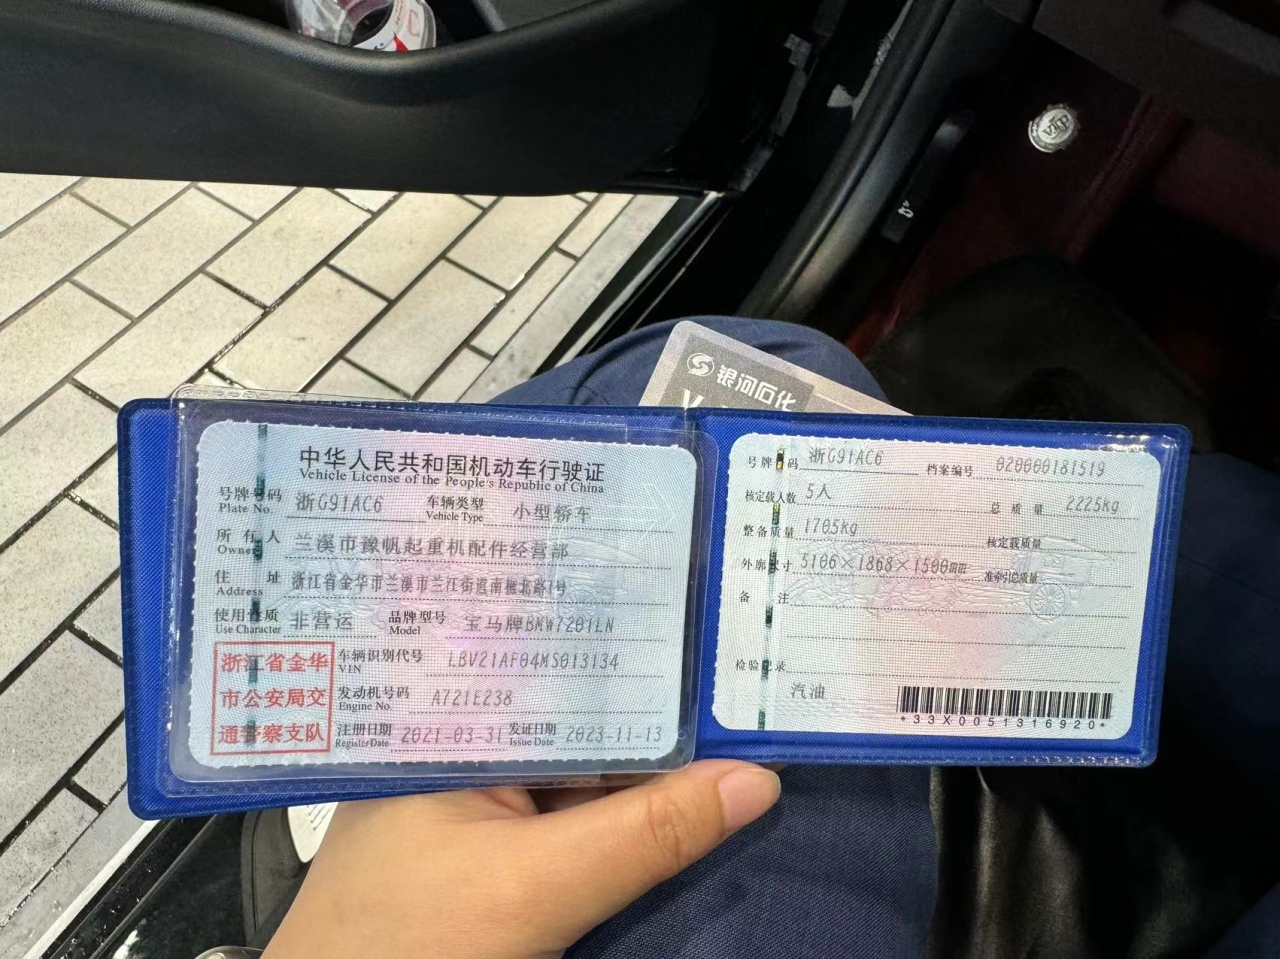 银河石化
中华人民共和国机动车行驶证
Vehicle License of the People's Republic of China
号牌号码 浙G91AC6 车辆类型 小型轿车
Plate No. Vehicle Type
所有人 兰溪市豫帆起重机配件经营部
Owner
住址 浙江省金华市兰溪市兰江街道南樵北路1号
Address
使用性质 非营运 品牌型号 宝马牌BMW7201LN
Use Character Model
浙江省金华
市公安局交
通警察支队
车辆识别代号 LBV21AF04MS013134
VIN
发动机号码 A721E238
Engine No.
注册日期 2021-03-31 发证日期 2023-11-13
Register Date Issue Date
号牌号码 浙G91AC6 档案编号 020000181519
核定载人数 5人 总质量 2225kg
整备质量 1705kg 核定载质量
外廓尺寸 5106×1868×1500mm 准牵引总质量
备注
检验记录
汽油
*33X0051316920*
VIP